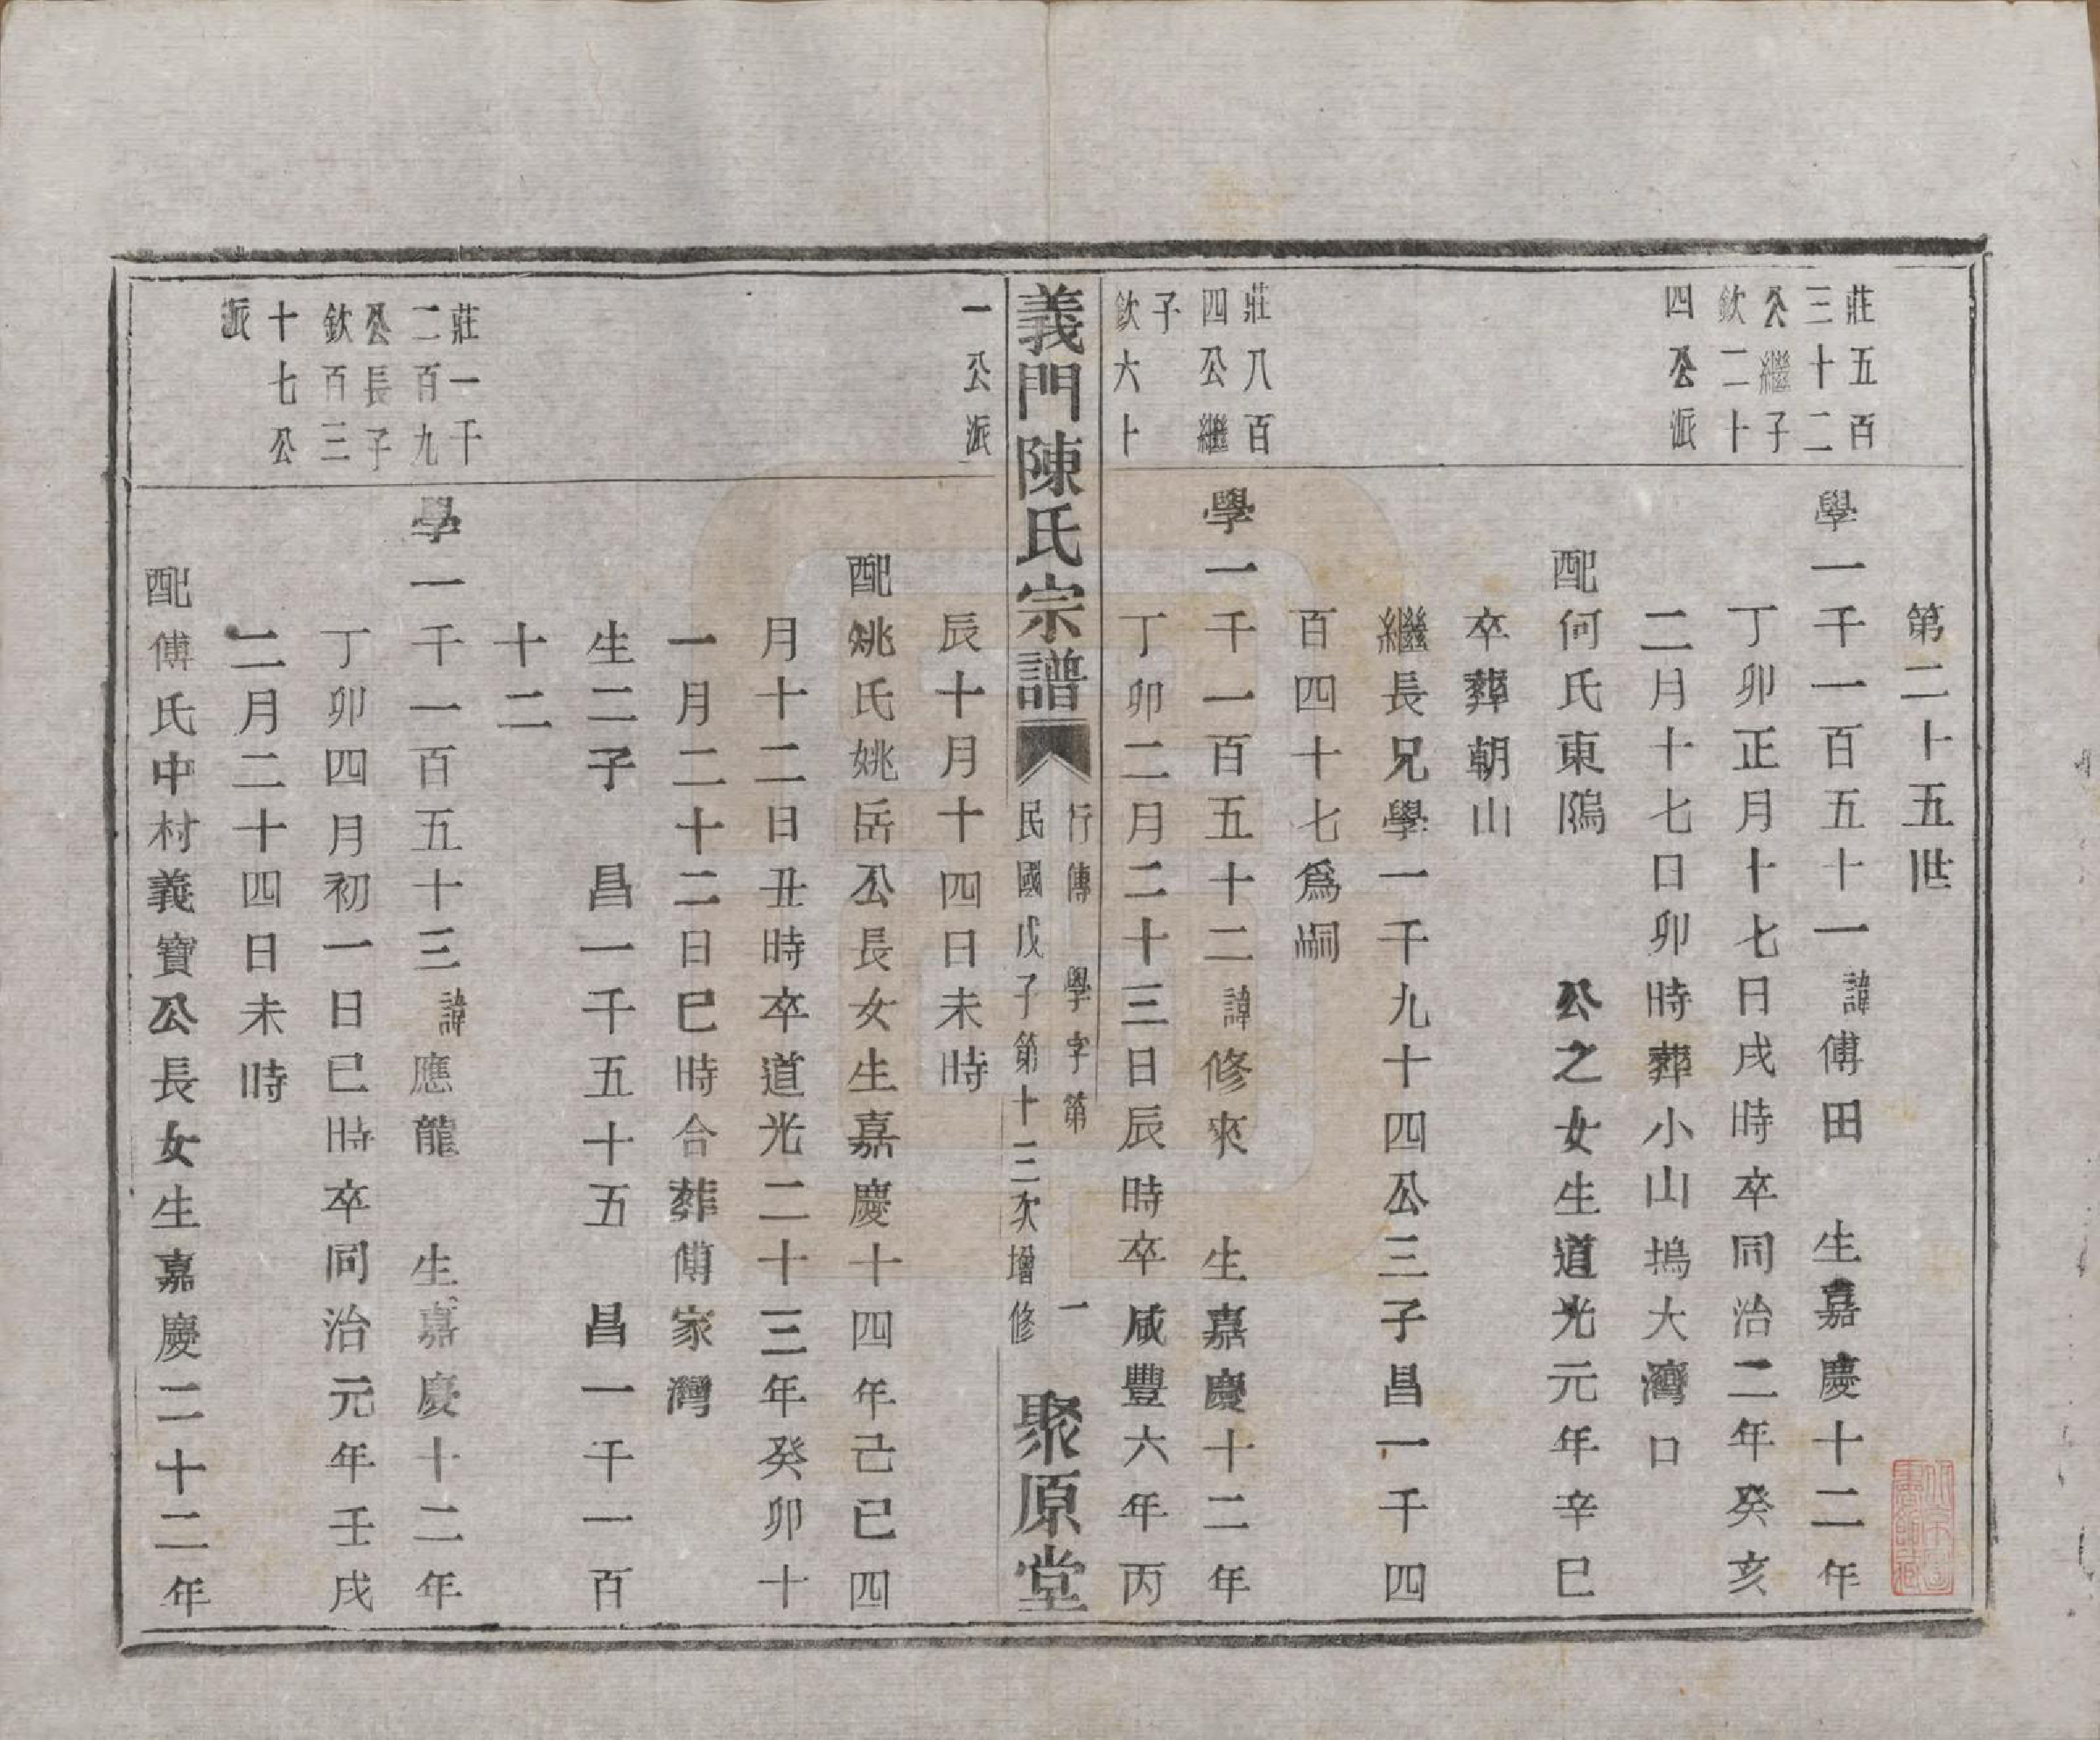 第二十五世
莊五百
三十二
公繼子
欽二十
四公派
學一千一百五十一諱傅田　生嘉慶十二年
丁卯正月十七日戌時卒同治二年癸亥
二月十七日卯時葬小山塢大灣口
配何氏東隝　公之女生道光元年辛巳
卒葬朝山
繼長兄學一千九十四公三子昌一千四
百四十七爲嗣
莊八百
四公繼
子
欽六十
一公派
學一千一百五十二諱修來　生嘉慶十二年
丁卯二月二十三日辰時卒咸豐六年丙
義門陳氏宗譜
行傳　學字第　一
民國戊子第十三次增修
聚原堂
辰十月十四日未時
配姚氏姚岳公長女生嘉慶十四年己巳四
月十二日丑時卒道光二十三年癸卯十
一月二十二日巳時合葬傅家灣
生二子　昌一千五十五　昌一千一百
十二
莊一千
二百九
公長子
欽百三
十七公
派
學一千一百五十三諱應龍　生嘉慶十二年
丁卯四月初一日巳時卒同治元年壬戌
二月二十四日未時
配傅氏中村義寶公長女生嘉慶二十二年